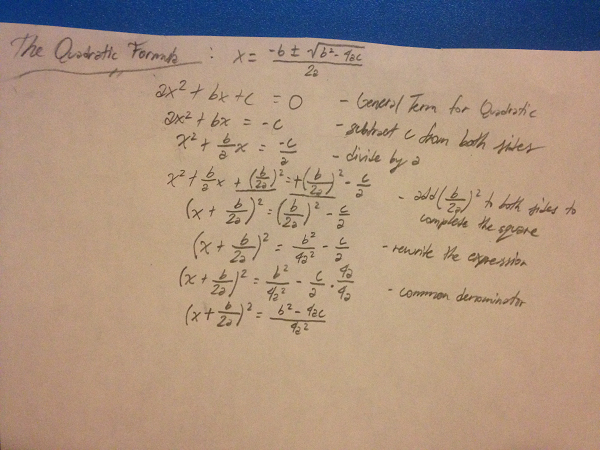 The Quadratic Formula : x = (-b ± √(b² - 4ac)) / 2a
ax² + bx + c = 0 - General Term for Quadratic
ax² + bx = -c - subtract c from both sides
x² + b/a x = -c/a - divide by a
x² + b/a x + (b/2a)² = +(b/2a)² - c/a - add (b/2a)² to both sides to
complete the square
(x + b/2a)² = (b/2a)² - c/a
(x + b/2a)² = b²/4a² - c/a - rewrite the expression
(x + b/2a)² = b²/4a² - c/a · 4a/4a - common denominator
(x + b/2a)² = (b² - 4ac)/4a²